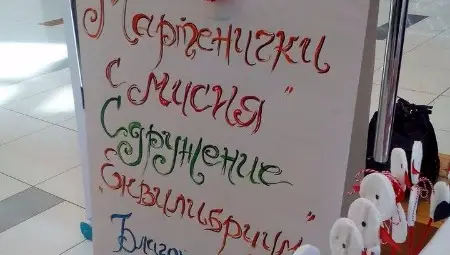 Мартенички
с мисия"
Сдружение
"Еквилибриум"